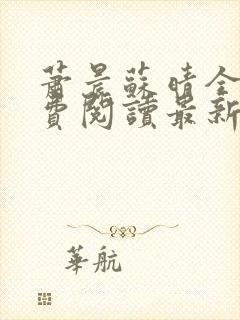 蕭晨蘇晴全
費閱讀最新
華航